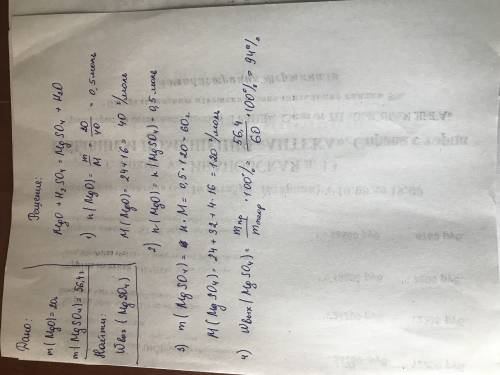 Дано:
m(MgO)=20г
m(MgSO4)=56,4г
Найти:
Wвых(MgSO4)
Решение:
MgO + H2SO4 = MgSO4 + H2O
1) n(MgO) = m/M = 20/40 = 0,5 моль
M(MgO) = 24+16 = 40 г/моль
2) n(MgO) = n(MgSO4) = 0,5 моль
3) m(MgSO4) = n·M = 0,5·120 = 60г.
M(MgSO4) = 24+32+4·16 = 120 г/моль
4) Wвых(MgSO4) = mпр/mтеор ·100% = 56,4/60 ·100% = 94%